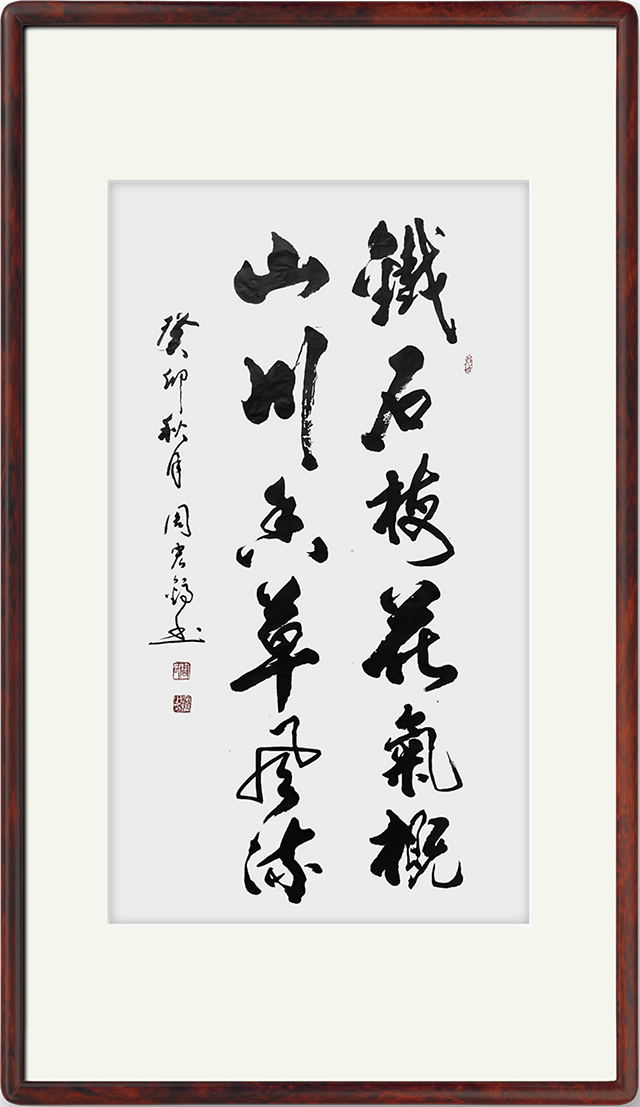 鐵石梅花氣概
山川香草風流
癸卯秋月周宏鶴书